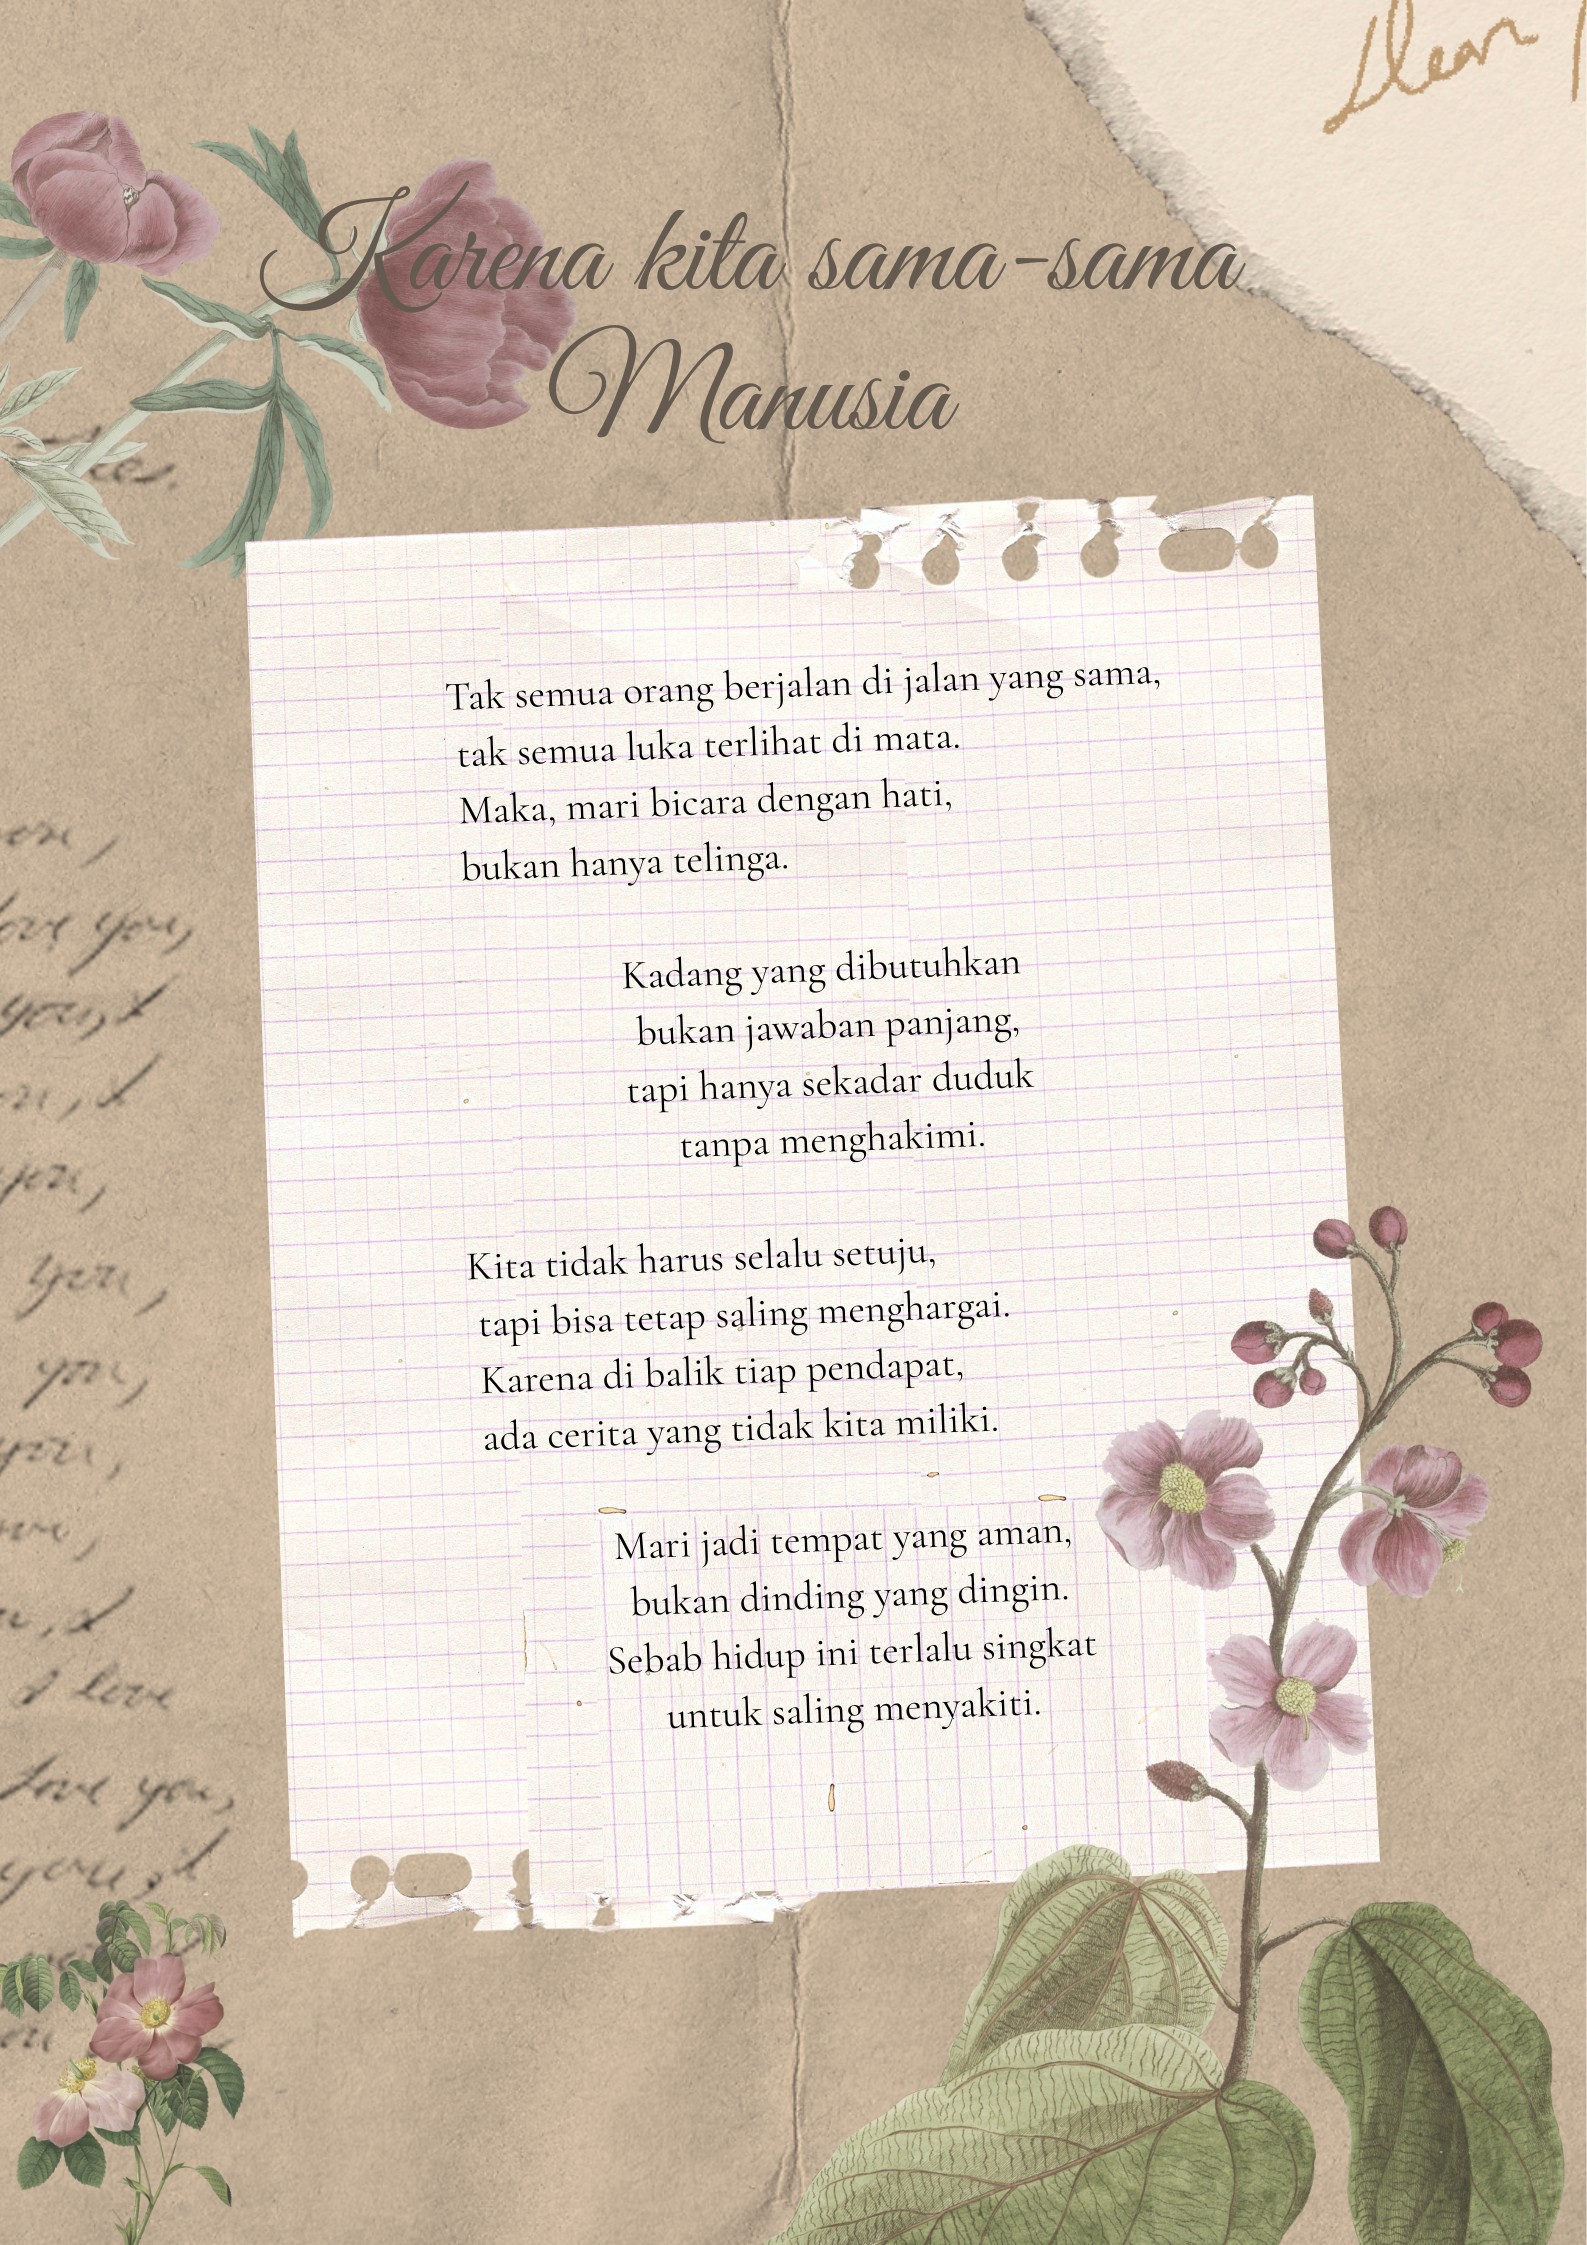 Dear
Karena kita sama-sama
Manusia
Tak semua orang berjalan di jalan yang sama,
tak semua luka terlihat di mata.
Maka, mari bicara dengan hati,
bukan hanya telinga.
Kadang yang dibutuhkan
bukan jawaban panjang,
tapi hanya sekadar duduk
tanpa menghakimi.
Kita tidak harus selalu setuju,
tapi bisa tetap saling menghargai.
Karena di balik tiap pendapat,
ada cerita yang tidak kita miliki.
Mari jadi tempat yang aman,
bukan dinding yang dingin.
Sebab hidup ini terlalu singkat
untuk saling menyakiti.
love you,
you, I
you,
you,
you,
I love
love you,
you, I